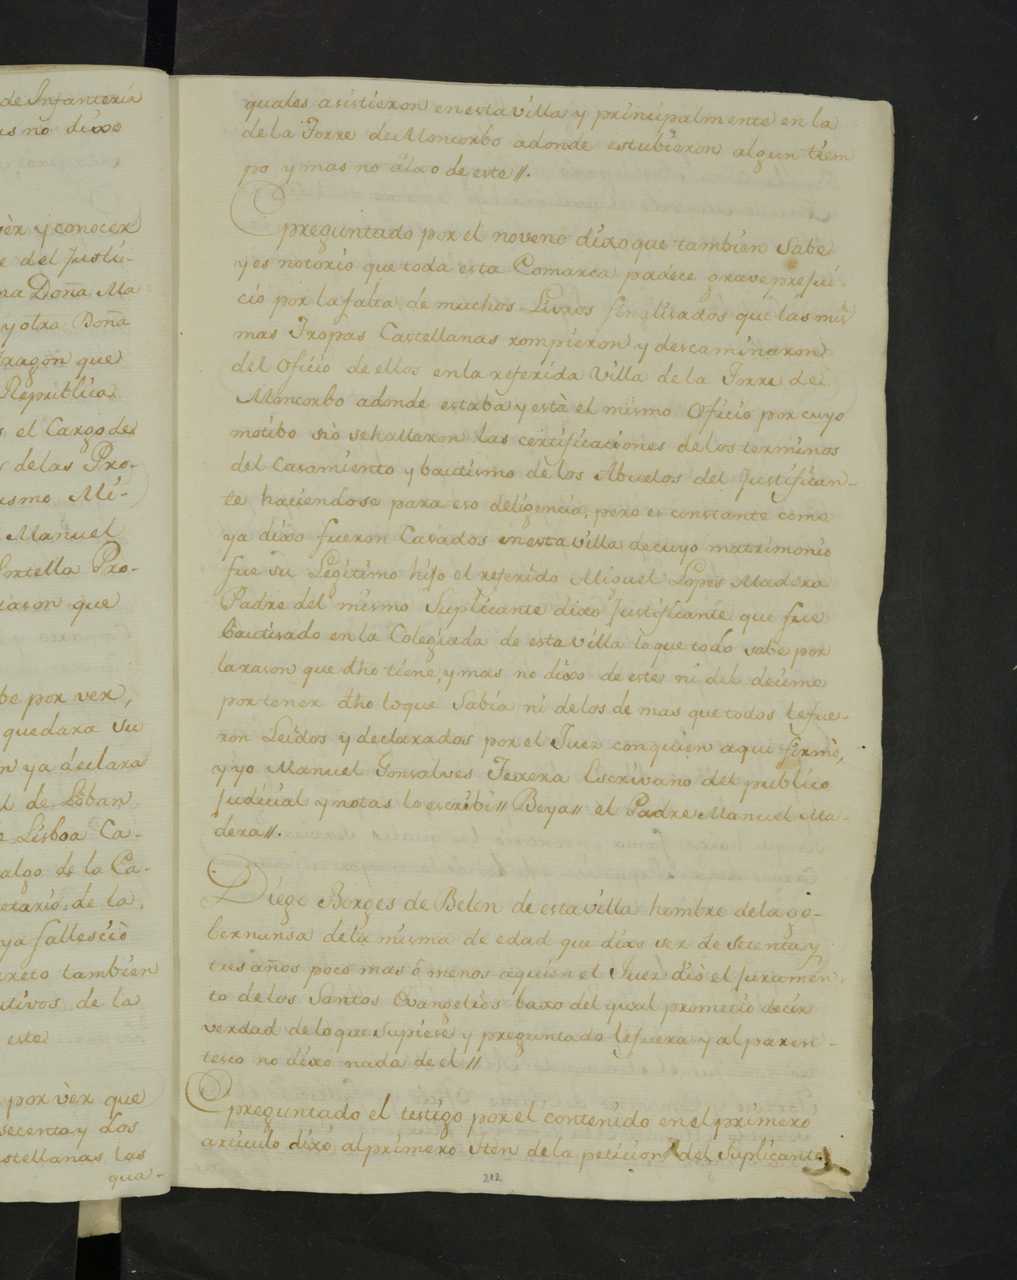 de Infanteria
as no dixo
vèr y conocer
e del Justi-
na Doña Ma
y otra Doña
Aragon que
Republica
s, el Cargo de
r de las Pro-
ismo Mi-
Manuel
Portella Pro-
taron que
be por ver,
quedara su
n ya declara
d de Leban
e Lisboa Ca-
algo de la Ca-
etario, de la
ya fallesciò
creto tambien
utivos de la
este
por vèr que
secenta y dos
astellanas las
qua-
quales asistieron en esta villa y principalmente en la
de la Torre de Moncorbo adonde estubieron algun tiem
po y mas no dixo de este //.
Preguntado por el noveno dixo que tambien Sabe
y es notorio que toda esta Comarca padece grave prejui-
cio por la falta de muchos Livros finalisados que las mis
mas Tropas Castellanas rompieron y descaminaron
del Oficio de ellos en la referida Villa de la Torre de
Moncorbo adonde estaba y està el mismo Oficio por cuyo
motibo no se hallaron las certificaciones de los terminos
del Casamiento y bautismo de los Abuelos del Justifican-
te haciendose para eso deligencia, pero es constante como
ya dixo fueron Casados en esta villa de cuyo matrimonio
fue su Legitimo hijo el referido Miguel Lopes Madera
Padre del mismo Suplicante dixo Justificante que fue
bautisado en la Colegiada de esta villa lo que todo sabe por
la rason que dho tiene, y mas no dixo de este ni del decimo
por tener dho lo que Sabia ni de los de mas que todos le fue-
ron Leidos y declarados por el Juez con quien aqui firmò,
y yo Manuel Gonsalves Texera Escrivano del publico
Judicial y notas lo escribi // Beya // el Padre Manuel Ma-
dera //.
Diego Borges de Belen de esta villa hombre de la go-
bernansa de la misma de edad que dixo ser de Setenta y
tres años poco mas ò menos a quien el Juez diò el Juramen-
to de los Santos Evangelios baxo del qual prometiò decir
verdad de lo que Supiese y preguntado le fuera y al paren-
tesco no dixo nada de èl //
Preguntado el testigo por el contenido en el primero
articulo dixo al primero Iten de la peticion del Suplicante
212